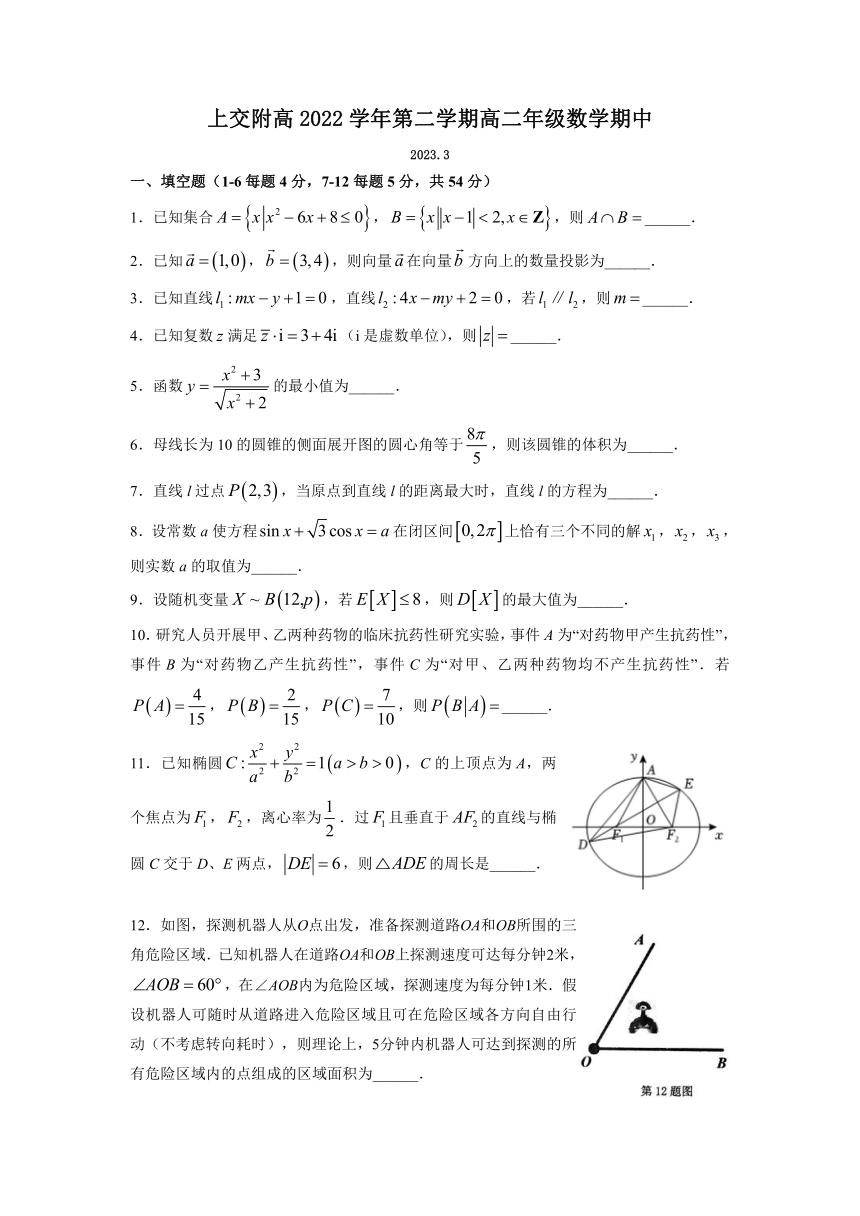 上交附高 2022 学年第二学期高二年级数学期中
2023.3
一、填空题（1-6 每题 4 分，7-12 每题 5 分，共 54 分）
1．已知集合 A = {x | x² − 6x + 8 ≤ 0}，B = {x | |x − 1| < 2, x ∈ Z}，则 A ∩ B = ______．
2．已知 a⃗ = (1,0)，b⃗ = (3,4)，则向量 a⃗ 在向量 b⃗ 方向上的数量投影为______．
3．已知直线 l₁ : mx − y + 1 = 0，直线 l₂ : 4x − my + 2 = 0，若 l₁ ∥ l₂，则 m = ______．
4．已知复数 z 满足 z̅ · i = 3 + 4i（i 是虚数单位），则 |z| = ______．
5．函数 y = (x² + 3)/√(x² + 2) 的最小值为______．
6．母线长为 10 的圆锥的侧面展开图的圆心角等于 8π/5，则该圆锥的体积为______．
7．直线 l 过点 P(2,3)，当原点到直线 l 的距离最大时，直线 l 的方程为______．
8．设常数 a 使方程 sin x + √3 cos x = a 在闭区间 [0, 2π] 上恰有三个不同的解 x₁，x₂，x₃，
则实数 a 的取值为______．
9．设随机变量 X ~ B(12,p)，若 E[X] ≤ 8，则 D[X] 的最大值为______．
10．研究人员开展甲、乙两种药物的临床抗药性研究实验，事件 A 为“对药物甲产生抗药性”，
事件 B 为“对药物乙产生抗药性”，事件 C 为“对甲、乙两种药物均不产生抗药性”．若
P(A) = 4/15，P(B) = 2/15，P(C) = 7/10，则 P(B|A) = ______．
11．已知椭圆 C : x²/a² + y²/b² = 1(a > b > 0)，C 的上顶点为 A，两
个焦点为 F₁，F₂，离心率为 1/2．过 F₁ 且垂直于 AF₂ 的直线与椭
圆 C 交于 D、E 两点，|DE| = 6，则 △ADE 的周长是______．
y
A
E
F₁
O
F₂
x
D
12．如图，探测机器人从O点出发，准备探测道路OA和OB所围的三
角危险区域．已知机器人在道路OA和OB上探测速度可达每分钟2米，
∠AOB = 60°，在∠AOB内为危险区域，探测速度为每分钟1米．假
设机器人可随时从道路进入危险区域且可在危险区域各方向自由行
动（不考虑转向耗时），则理论上，5分钟内机器人可达到探测的所
有危险区域内的点组成的区域面积为______．
A
O
B
第 12 题图